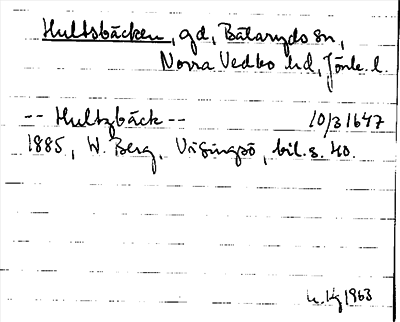 Hultsbäcken, gd, Bälaryds sn,
Norra Vedbo hd, Jönk. l.
-- Hultzbäck -- 10/3 1647
1885, W. Berg, Visingsö, bil. s. 40.
1963